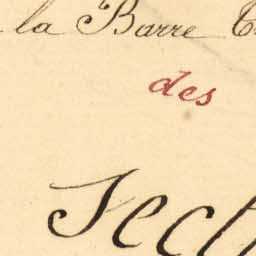 la Barre
des
Sect